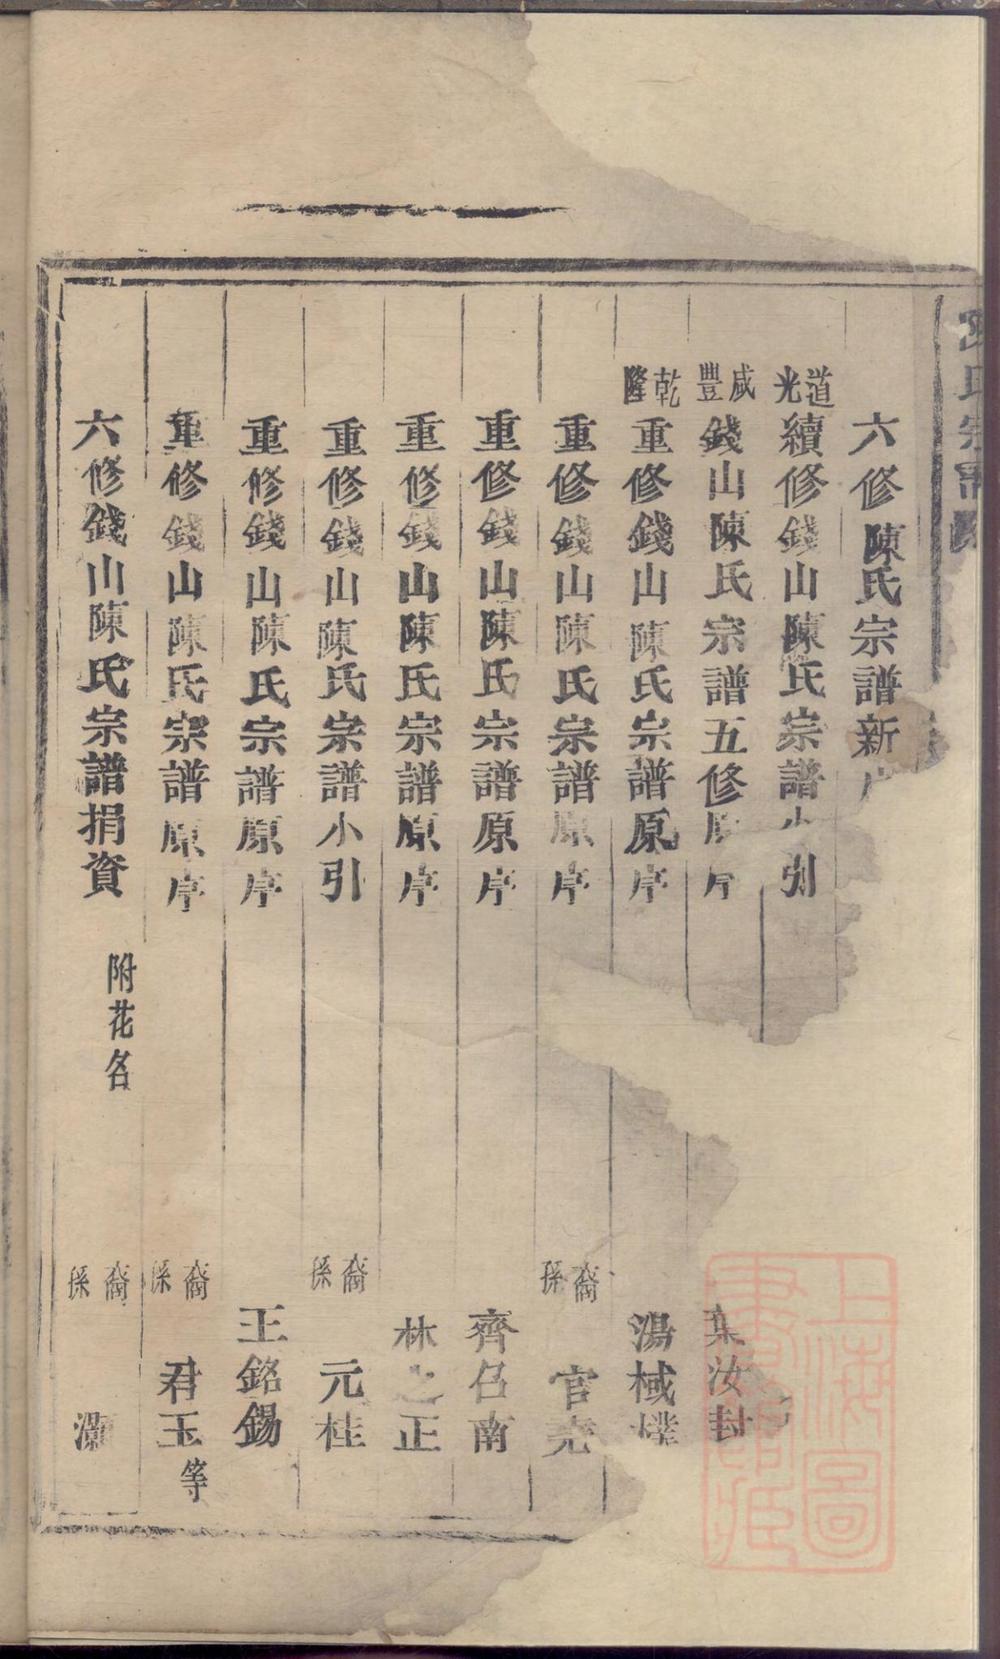 氏宗
六修陳氏宗譜新
道光續修錢山陳氏宗譜小引
咸豐錢山陳氏宗譜五修原序 葉汝封
乾隆重修錢山陳氏宗譜原序 湯棫樸
重修錢山陳氏宗譜原序 裔孫 官堯
重修錢山陳氏宗譜原序 齊召南
重修錢山陳氏宗譜原序 林之正
重修錢山陳氏宗譜小引 裔孫 元桂
重修錢山陳氏宗譜原序 王銘錫
重修錢山陳氏宗譜原序 裔孫 君玉等
六修錢山陳氏宗譜捐資 附花名 裔孫
上海圖書館藏